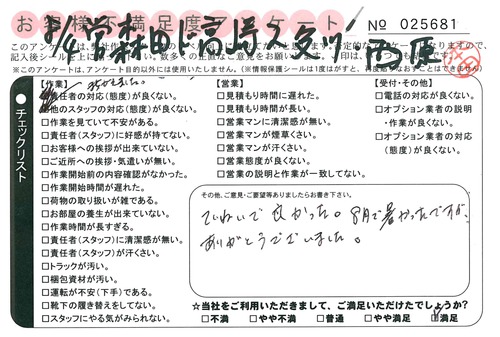 お客様不満足度アンケート
№ 025681
8/6 営森田ド高崎久々
記入後シール
(※このアンケートは、アンケート目的以外には使用いたしません。)
チェックリスト
【作業】
責任者の対応(態度)が良くない。
□他のスタッフの対応(態度)が良くない。
□作業を見ていて不安がある。
□責任者(スタッフ)に好感が持てない。
□お客様への挨拶が出来ていない。
□ご近所への挨拶・気遣いが無い。
□作業開始前の内容確認がなかった。
□作業開始時間が遅れた。
□荷物の取り扱いが雑である。
□お部屋の養生が出来ていない。
□作業時間が長すぎる。
□責任者(スタッフ)に清潔感が無い。
□責任者(スタッフ)が汗くさい。
□トラックが汚い。
□梱包資材が汚い。
□運転が不安(下手)である。
□靴下の履き替えをしてない。
□スタッフにやる気がみられない。
【営業】
□見積もり時間に遅れた。
□見積もり時間が長い。
□営業マンに清潔感が無い。
□営業マンが煙草くさい。
□営業マンが汗くさい。
□営業態度が良くない。
□営業の説明と作業が一致してない。
【受付・その他】
□電話の対応が良くない。
□オプション業者の説明
・作業が良くない。
□オプション業者の対応
(態度)が良くない。
その他、ご意見・ご要望等ありましたらお書き下さい。
ていねいで良かった。8月で暑かったですが、
ありがとうございました。
☆当社をご利用いただきまして、ご満足いただけたでしょうか?
□不満 □やや不満 □普通 □やや満足 □満足